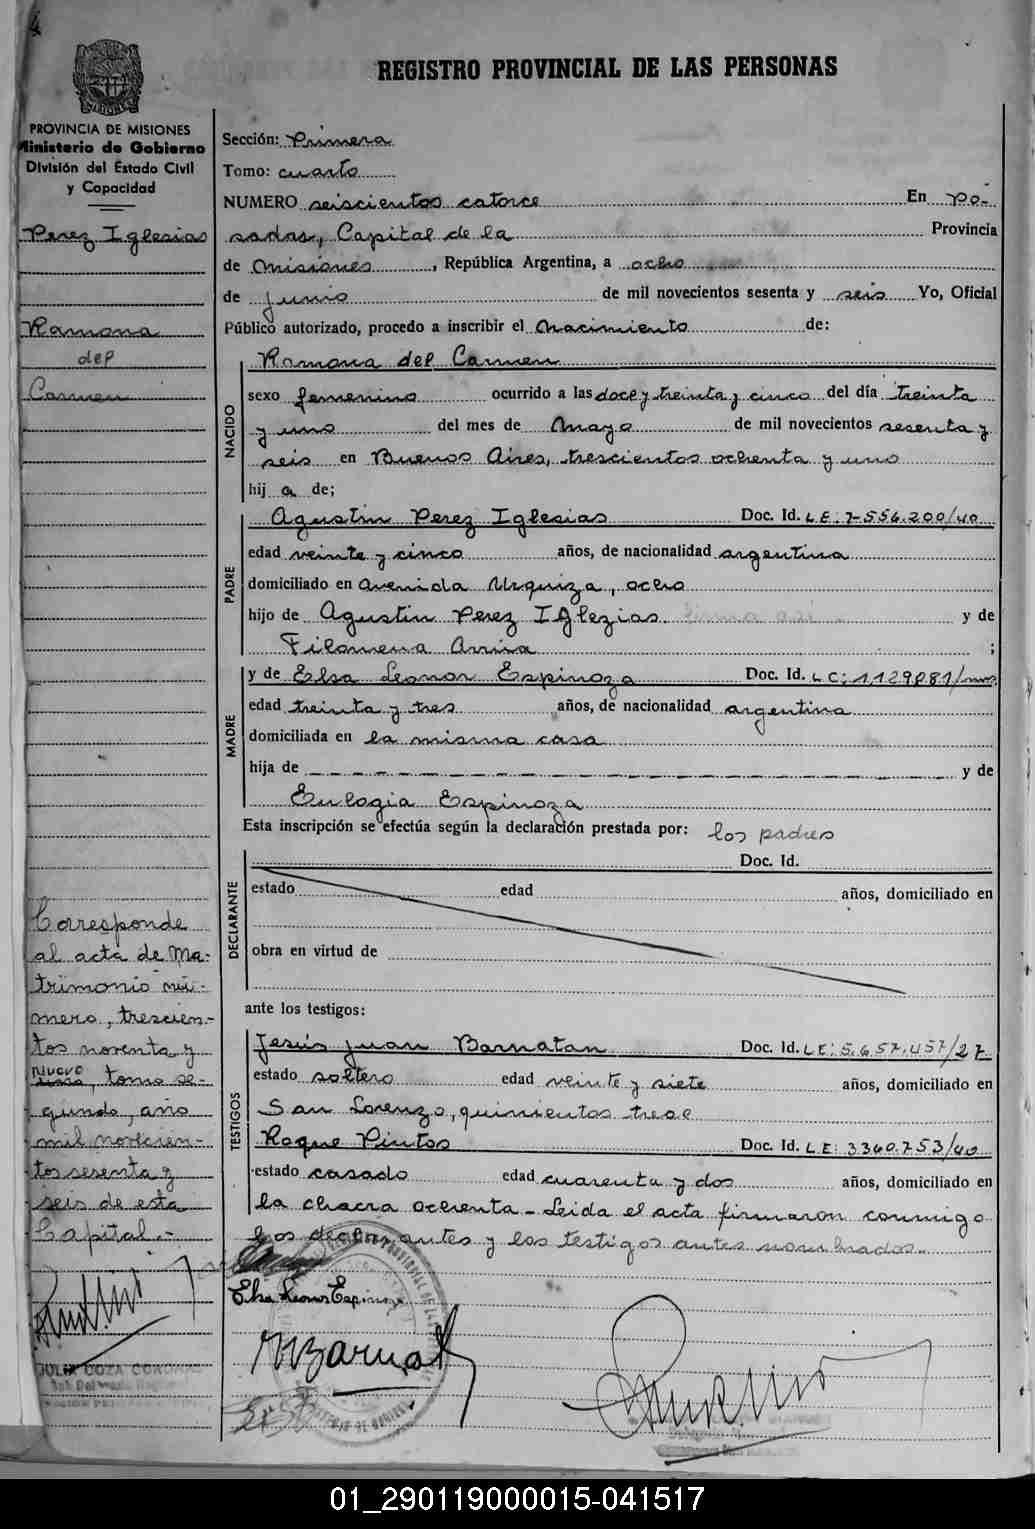 REGISTRO PROVINCIAL DE LAS PERSONAS
PROVINCIA DE MISIONES
Ministerio de Gobierno
División del Estado Civil
y Capacidad
Perez Iglesias
Ramona
del
Carmen
Corresponde
al acta de Ma-
trimonio nú-
mero, trescien-
tos noventa y
nuevo
tomo se-
gundo, año
mil novecien-
tos sesenta y
seis de esta
Capital.-
Sección: Primera
Tomo: cuarto
NUMERO seiscientos catorce En Po-
sadas, Capital de la Provincia
de Misiones, República Argentina, a ocho
de junio de mil novecientos sesenta y seis Yo, Oficial
Público autorizado, procedo a inscribir el Nacimiento de:
NACIDO
Ramona del Carmen
sexo femenino ocurrido a las doce y treinta y cinco del día treinta
y uno del mes de Mayo de mil novecientos sesenta y
seis en Buenos Aires, trescientos ochenta y uno
hij a de;
PADRE
Agustin Perez Iglesias Doc. Id. L E: 7-556.200/40
edad veinte y cinco años, de nacionalidad argentina
domiciliado en Avenida Urquiza, ocho
hijo de Agustin Perez Iglezias y de
Filomena Arriva ;
MADRE
y de Elsa Leonor Espinoza Doc. Id. L C: 1,129881/
edad treinta y tres años, de nacionalidad argentina
domiciliada en la misma casa
hija de y de
Eulogia Espinoza
Esta inscripción se efectúa según la declaración prestada por: los padres
DECLARANTE
Doc. Id.
estado edad años, domiciliado en
obra en virtud de
ante los testigos:
TESTIGOS
Jesús Juan Barnatan Doc. Id. L E: 5.657.457/27
estado soltero edad veinte y siete años, domiciliado en
San Lorenzo, quinientos trece
Roque Pintos Doc. Id. L E: 3360.753/40
estado casado edad cuarenta y dos años, domiciliado en
la chacra ochenta - Leida el acta firmaron conmigo
los declarantes y los testigos antes nombrados.-
Elsa Leonor Espinoza
01_290119000015-041517